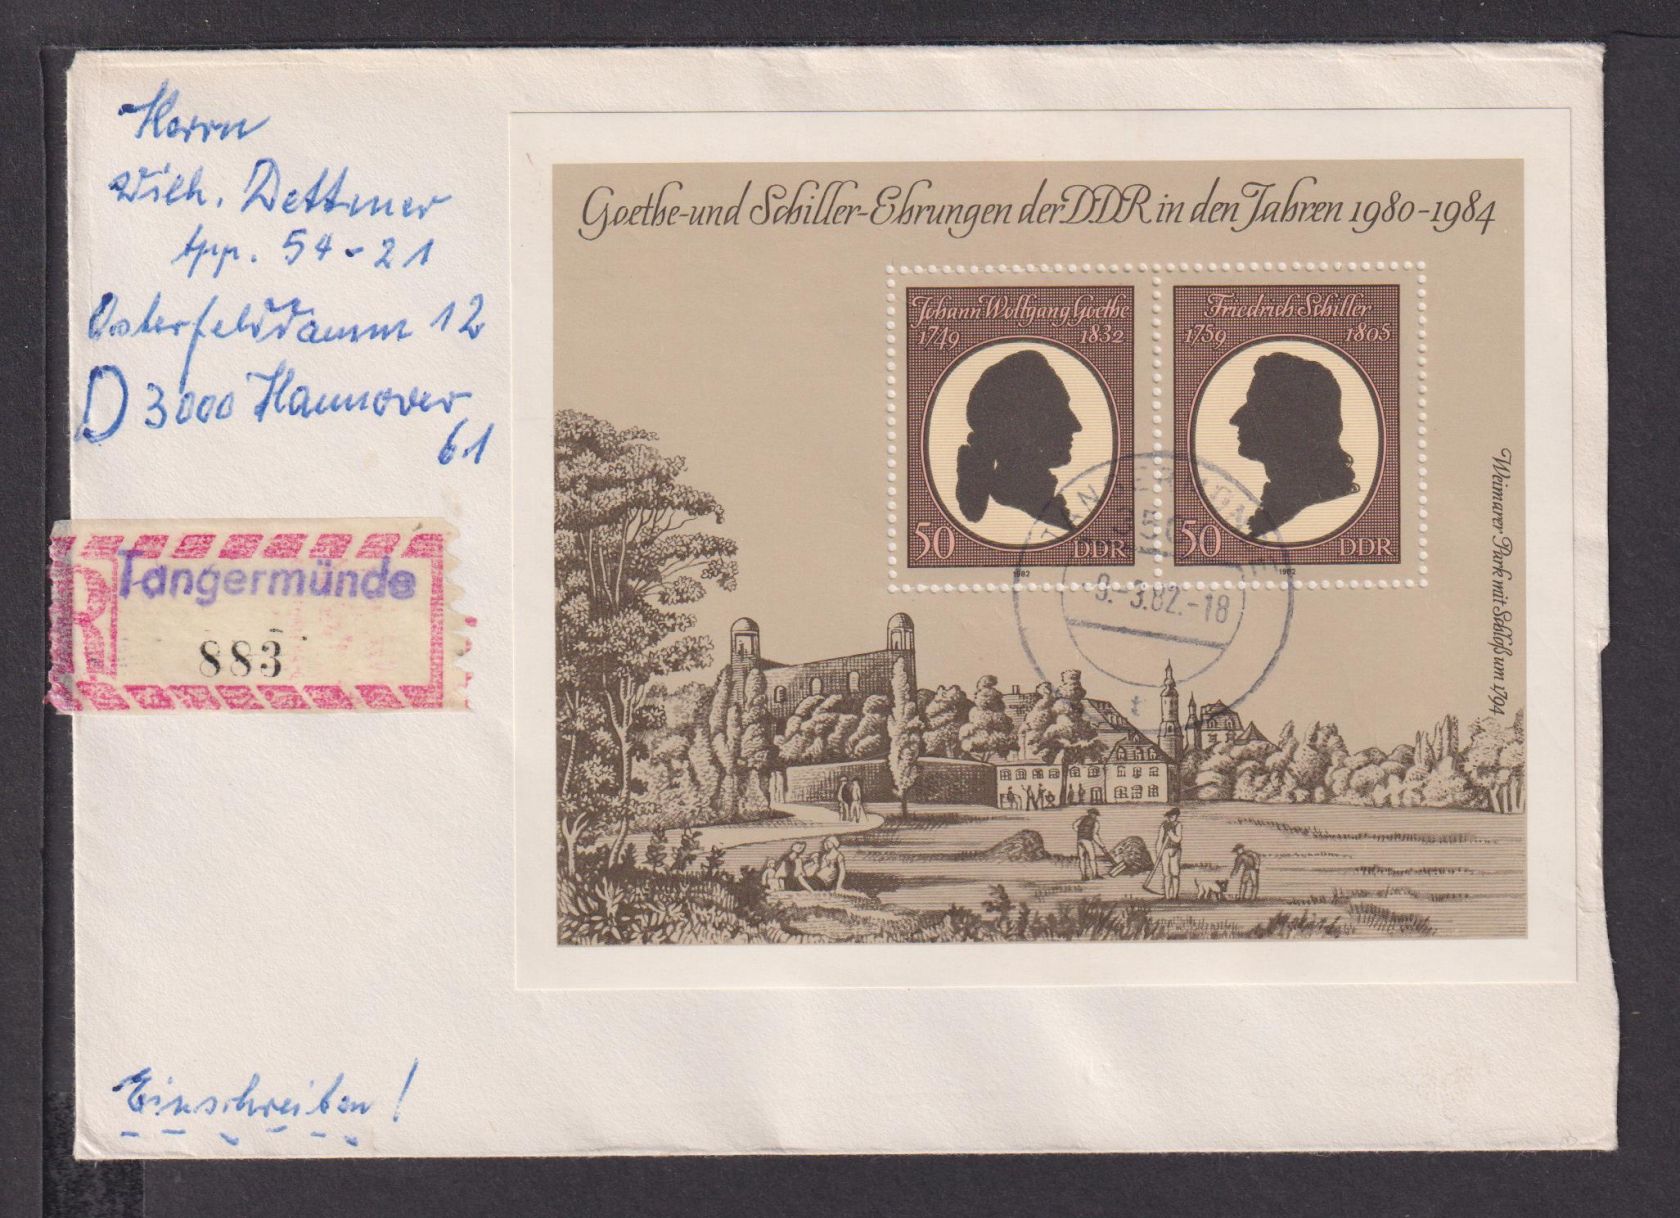 Herrn
Wilh. Dettmer
App. 54-21
Osterfelddamm 12
D 3000 Hannover
61
R
Tangermünde
883
Einschreiben!
Goethe-und Schiller-Ehrungen der DDR in den Jahren 1980-1984
Johann Wolfgang Goethe
1749 1832
50 DDR
1982
Friedrich Schiller
1759 1805
50 DDR
1982
TANGERMÜNDE
-9.-3.82.-18
t
Weimarer Park mit Schloß um 1794